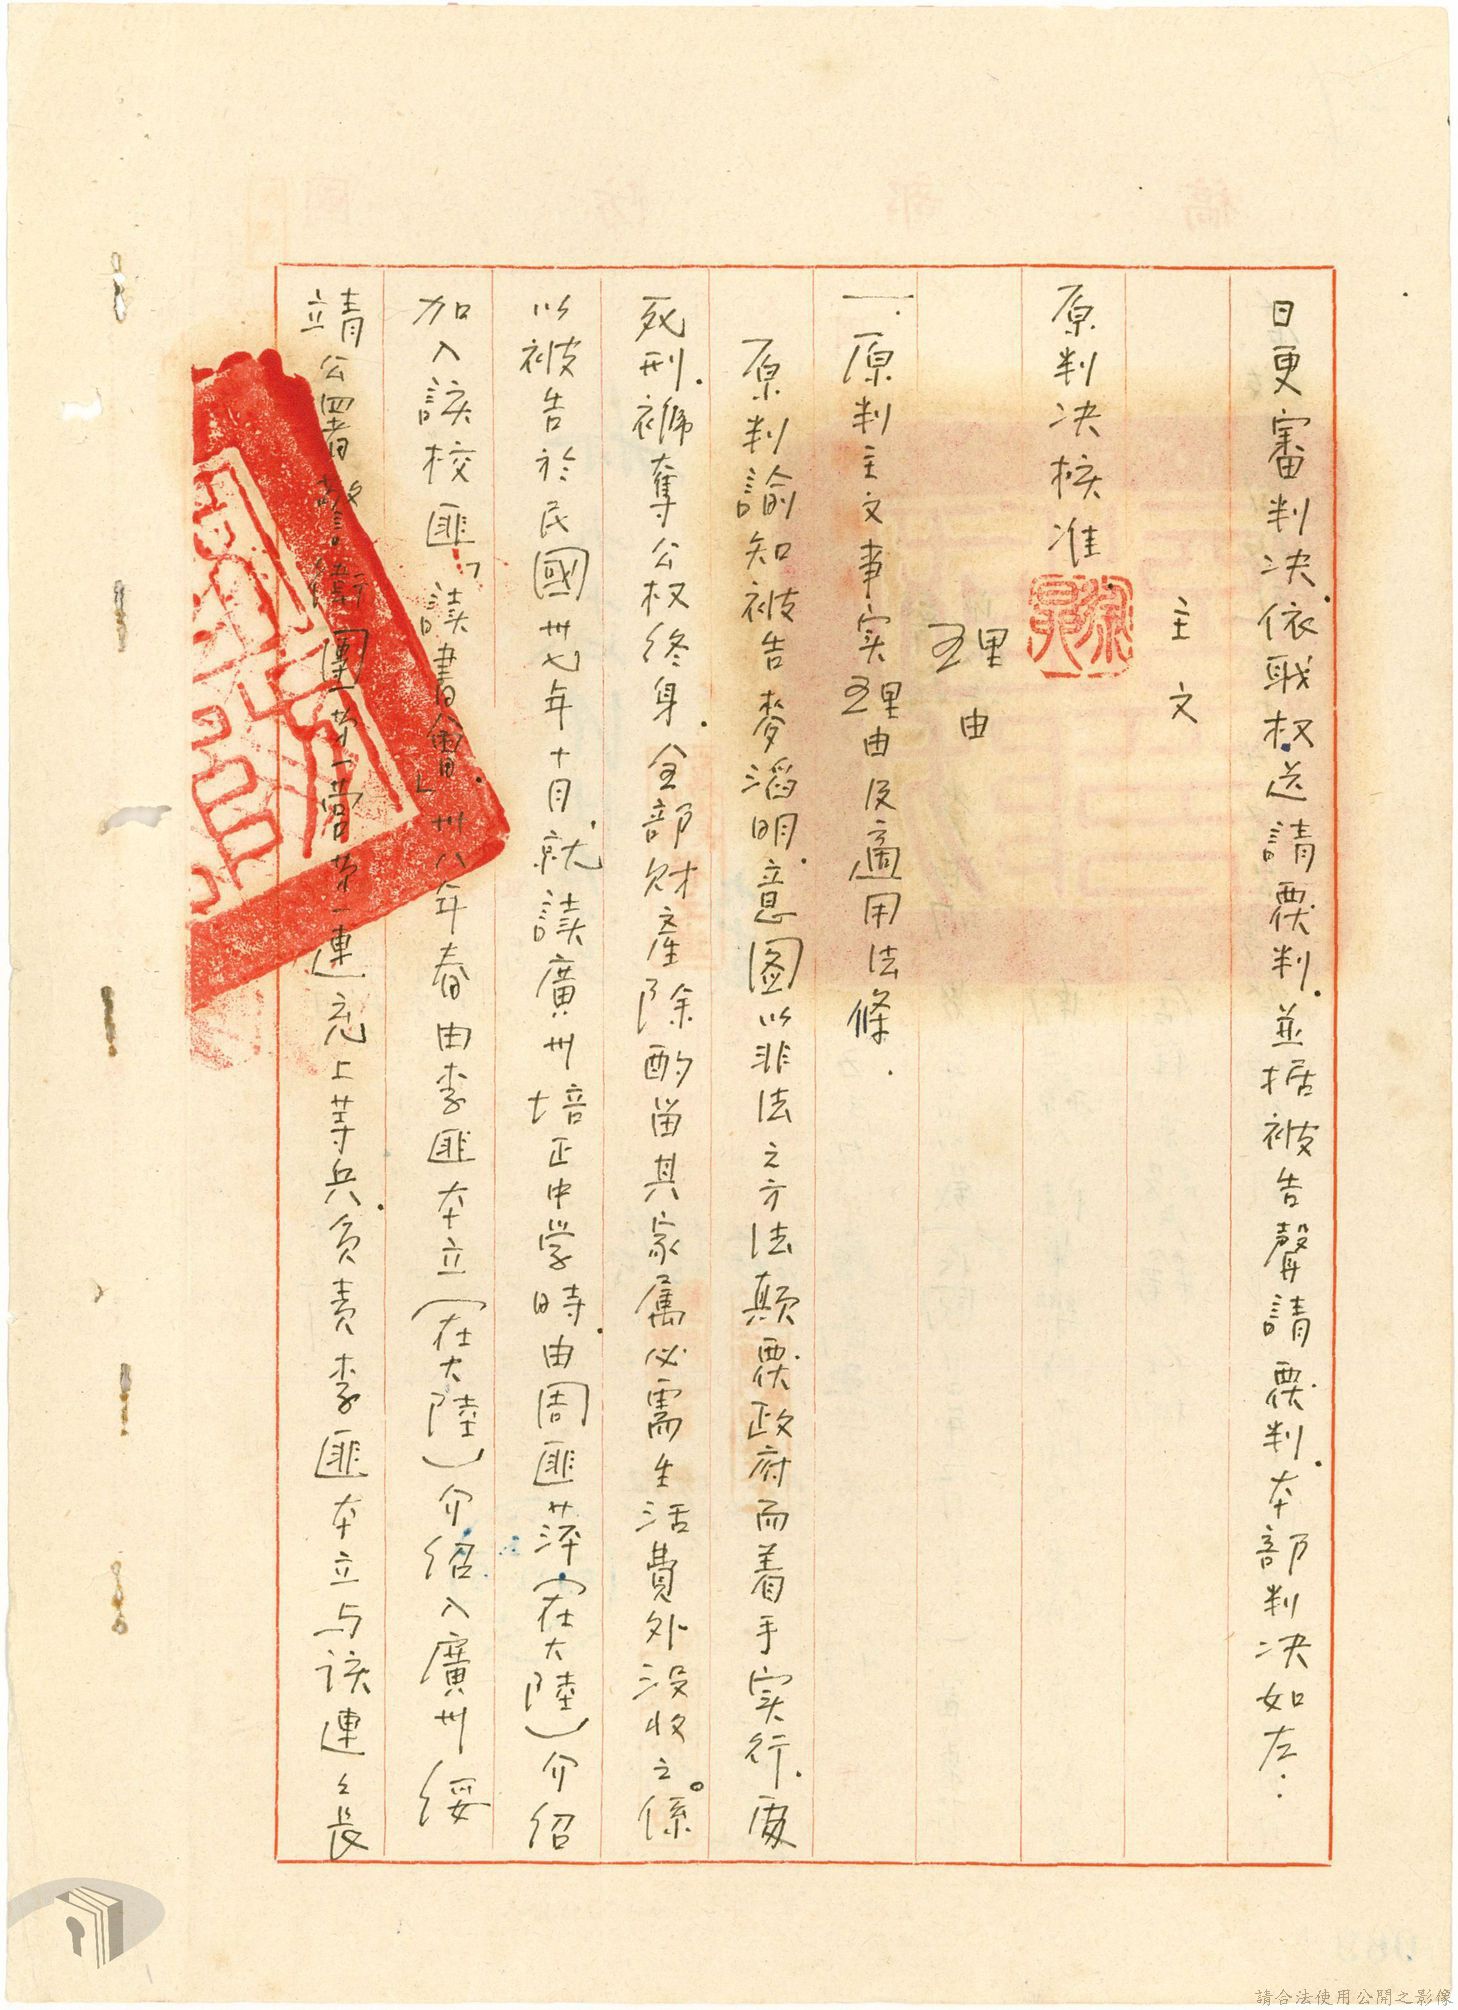 日更審判决.依职权送請覆判.並据被告聲請覆判.本部判决如左:
主文
原判决核准.
理由
一.原判主文事实理由及適用法條.
原判諭知被告麥滔明.意图以非法之方法顛覆政府而着手实行.處
死刑.褫奪公权終身.全部财產除酌留其家属必需生活費外沒收之。係
以被告於民國卅七年十月就讀廣州培正中学時.由周匪萍(在大陸)介紹
加入該校匪「讀書會」.卅八年春由李匪本立(在大陸)介紹入廣州綏
靖公署警衛團第一營第一連充上等兵.負责李匪本立与该連々長
請合法使用公開之影像